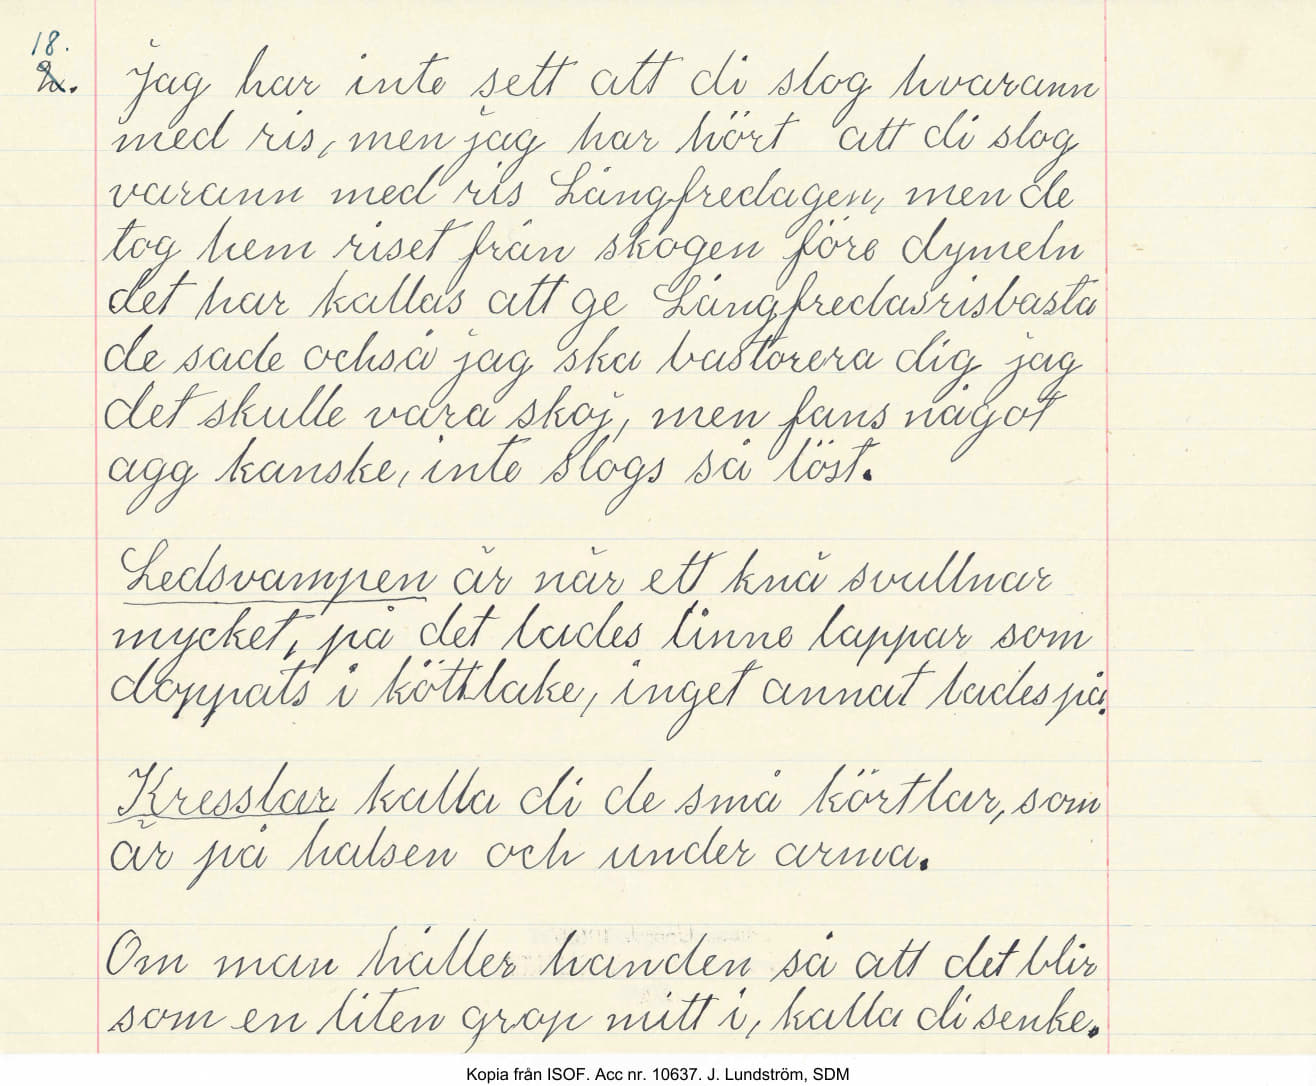 18.
2.
Jag har inte sett att di slog hvarann
med ris, men jag har hört att di slog
varann med ris Långfredagen, men de
tog hem riset från skogen före dymeln
det har kallas att ge Långfredasrisbasta
de sade också jag ska bastorera dig jag
det skulle vara skoj, men fans något
agg kanske, inte slogs så löst.
Ledsvampen är när ett knä svullnar
mycket, på det lades linne lappar som
doppats i köttlake, inget annat lades på.
Kresslar kalla di de små körtlar, som
är på halsen och under arma.
Om man håller handen så att det blir
som en liten grop mitt i, kalla di senke.
Kopia från ISOF. Acc nr. 10637. J. Lundström, SDM